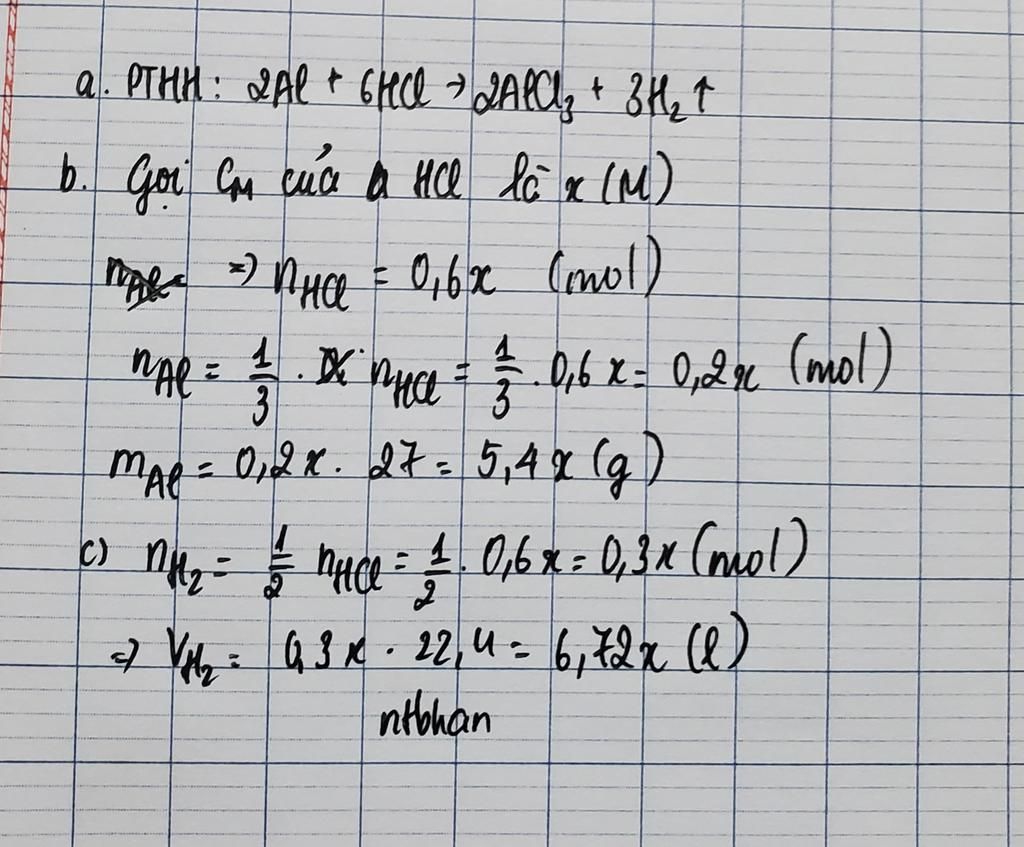 a. PTHH: 2Al + 6HCl → 2AlCl₃ + 3H₂↑
b. Gọi C_M của HCl là x (M)
=> n_HCl = 0,6x (mol)
n_Al = 1/3 . n_HCl = 1/3 . 0,6x = 0,2x (mol)
m_Al = 0,2x . 27 = 5,4x (g)
c) n_H₂ = 1/2 n_HCl = 1/2 . 0,6x = 0,3x (mol)
=> V_H₂ = 0,3x . 22,4 = 6,72x (l)
ntbhan